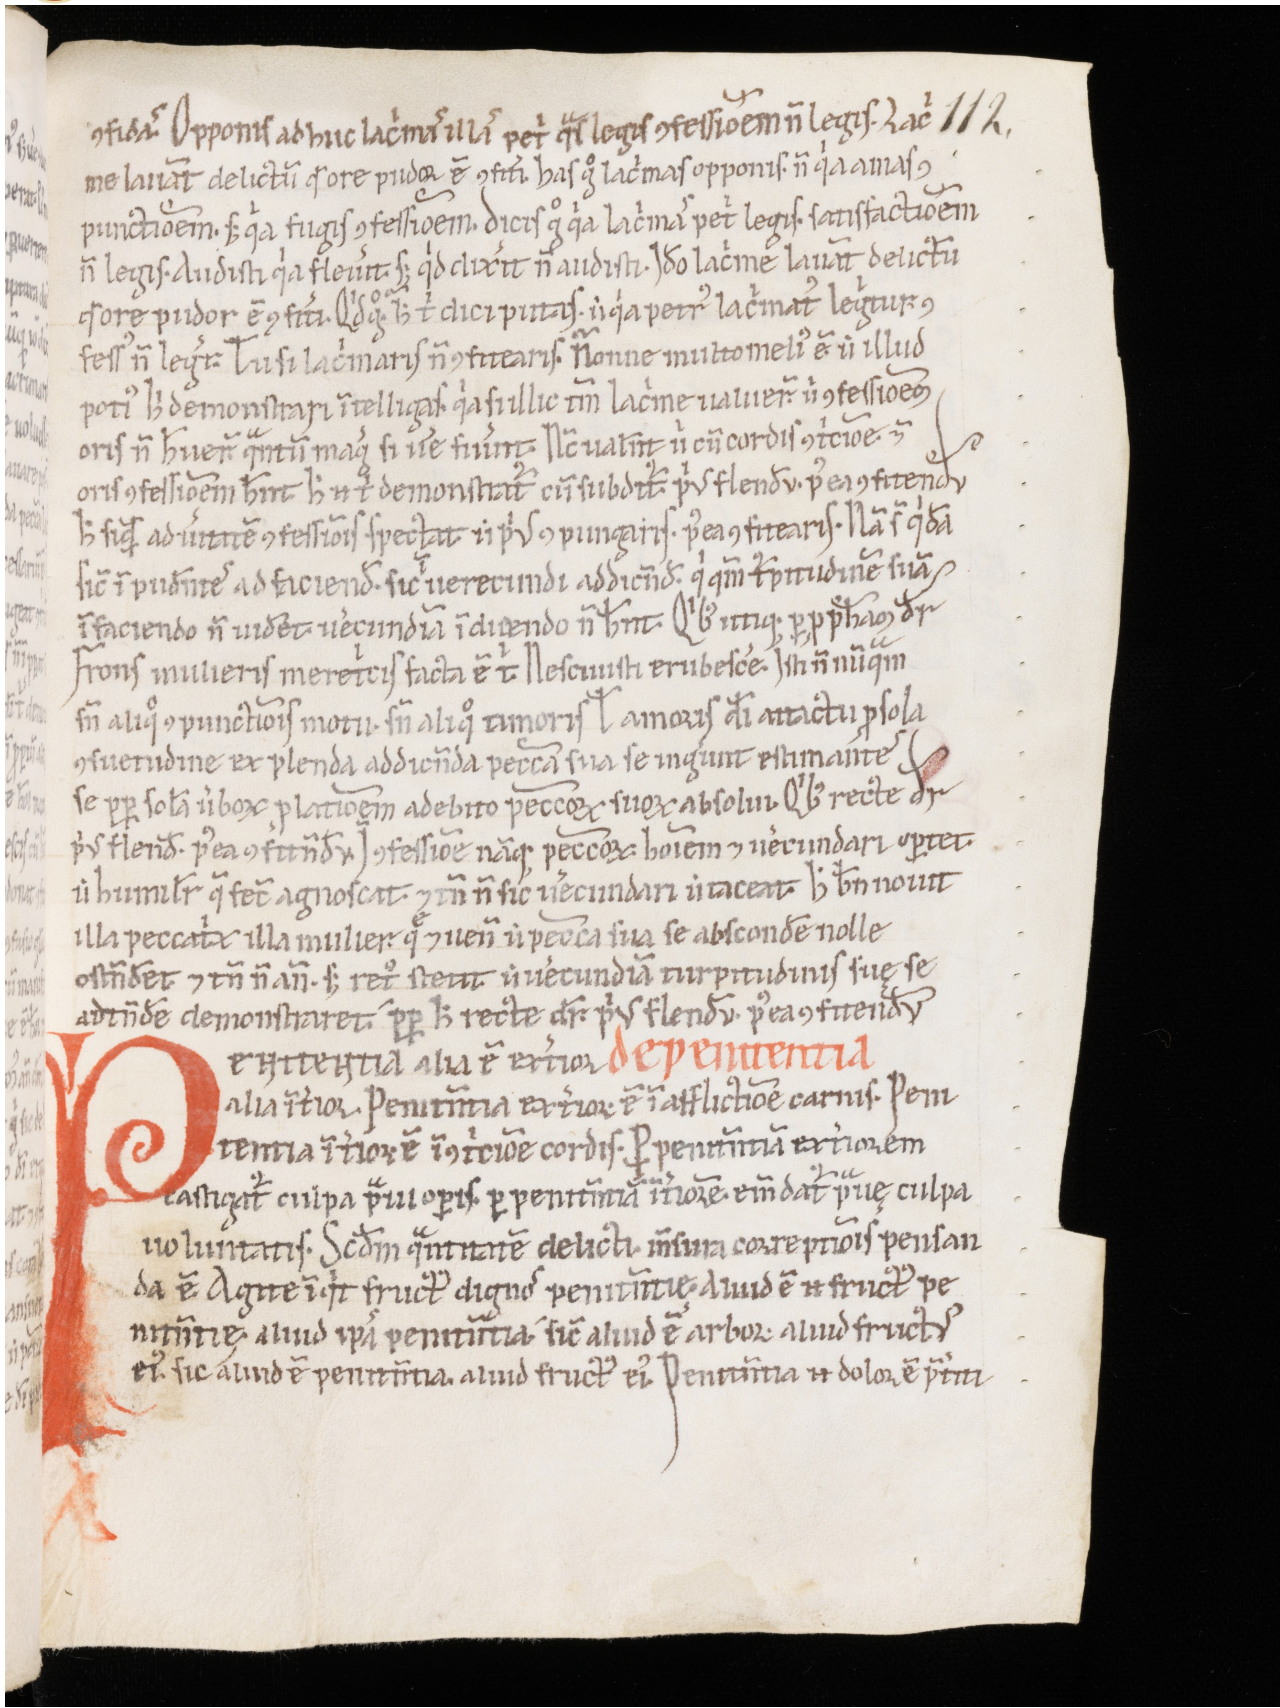 ꝯfidās. Opponis adhuc lac̓mas illas pet̓ q̄s legis ꝯfessiōem n̄ legis. Lac̓ 112.
me lauāt delictū q̄ ore pudor ē ꝯfit̓i. has g̊ lac̓mas opponis. n̄ q̓a amas ꝯ
punctiōem. s; q̓a fugis ꝯfessiōem. Dicis g̊ q̓a lac̓mas pet̓ legis. satisfactiōem
n̄ legis. Audisti q̓a fleuit. s; q̓d dixit n̄ audisti. Ido lac̓me lauāt delictū
q̄ ore pudor ē ꝯfit̓i. Qd g̊ h̄ t̓ dici putas. ut q̓a petrꝰ lac̓matꝰ leg̓tur ꝯ
fessꝰ n̄ leg̓t̓. Tu si lac̓maris n̄ ꝯfitearis. Nonne multo meliꝰ ē. ut illud
potiꝰ h̄ demonstrari ītelligas. q̓a si illic tm̄ lac̓me ualuer̄ ut ꝯfessiōem
oris n̄ h̄uer̄ q̄ntū maḡ si u̓e fuūnt. Nc̄ ual̄nt ut cū cordis ꝯt̓ciōe. ⁊
oris ꝯfessiōem h̄nt h̄ n̄ t̓ demonstratꝰ cū subdit̓. p̓ꝰ flendū. pꝰea ꝯfitendū
h̄ siq̄dē ad u̓tutē ꝯfessiōis spectat ut p̓ꝰ ꝯpungaris. pꝰea ꝯfitearis. Nā s̄ q̓dā
sic̄ īpudn̄tes ad faciend̄. sic̄ uerecundi ad dicn̄d̄. q̓ qm̄ t̓pitudinē suā
ī faciendo n̄ uidēt. u̓ecundiā ī dicendo n̄ h̄nt. Qb̓ utiq; ꝑ pph̄am dr̄
Frons mulieris meret̓cis facta ē t̓. Nesciuisti erubesc̄e. Isti n̄ nūq̄m
sn̄ aliq̊ ꝯpunctiōis motu. sn̄ aliq̊ timoris l̄ amoris di̅ attactu p sola
ꝯsuetudine explenda ad dicn̄da pecc̄a sua se ing̓unt estimantes
se ꝓp̄ solā u̓borꝝ platiōem a debito pecc̄orꝝ suorꝝ absolui. Qb̓ recte dr̄
p̓ꝰ flend̄. pꝰea ꝯfitn̄dū. In ꝯfessiōe nāq; pecc̄orꝝ hoīem ⁊ u̓ecundari oꝑtet.
ut humilr̄ q̄ fec̄ agnoscat. ⁊ tn̄ n̄ sic u̓ecundari ut taceat. h̄ bn̄ nouit
illa peccat̓x illa mulier. q̄ ⁊ uen̄ ut pecc̄a sua se abscondē nolle
ostn̄det ⁊ tn̄ n̄ an̄. s; ret̊ stetit ut u̓ecundiā turpitudinis suę se
adtn̄dē demonstraret. ꝓp̄ h̄ recte dr̄. p̓ꝰ flendū. pꝰea ꝯfitendū
Penitentia alia ē ext̓ior de penitentia
alia īt̓ior. Penitn̄tia ext̓ior ē ī afflictiōe carnis. Peni
tentia īt̓ior ē ī ꝯt̓ciōe cordis. Ꝑ penitn̄tiā ext̓iorem
castigatꝰ culpa p̄ui oꝑis. ꝑ penitn̄tiā īt̓iorē. em̄datꝰ p̄uę culpa
uoluntatis. Scd̄m q̄ntitatē delicti. mn̄sura correptiōis pensan
da ē. Agite īq̓t fructꝰ dignos penitn̄tię. Aliud ē n̄ fructꝰ pe
nitn̄tię. aliud ip̄a penitn̄tia. sic̄ aliud ē arbor. aliud fructꝰ
eiꝰ. sic aliud ē penitn̄tia. aliud fructꝰ eiꝰ. Penitn̄tia n̄ dolor ē p̄t̓iti